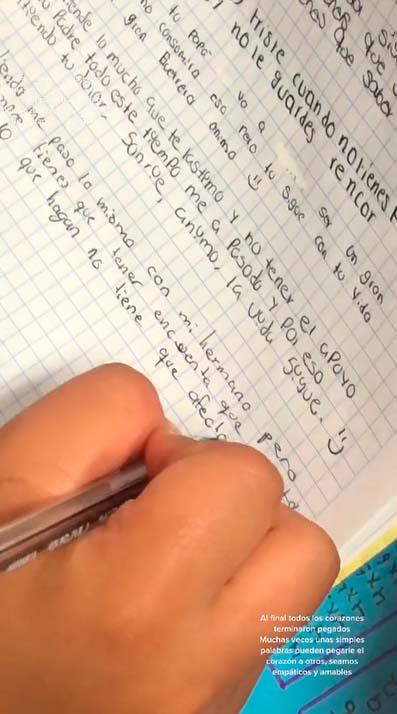 que
que saber
triste cuando no tienes
no le guardes rencor
tu papá va a ser un gran
eso pero tu sigue con tu vida
gran Guerrero animo :)
lo mucho que te lastimo y no tener el apoyo
Padre todo este tiempo me a pasado y por eso
tu dolor sonrie, anymo, la vida sigue. :)
me paso lo mismo con mi hermano pero
tienes que tener encuenta que
que hagan no tiene que
Al final todos los corazones
terminaron pegados
Muchas veces unas simples
palabras pueden pegarle el
corazón a otros, seamos
empáticos y amables